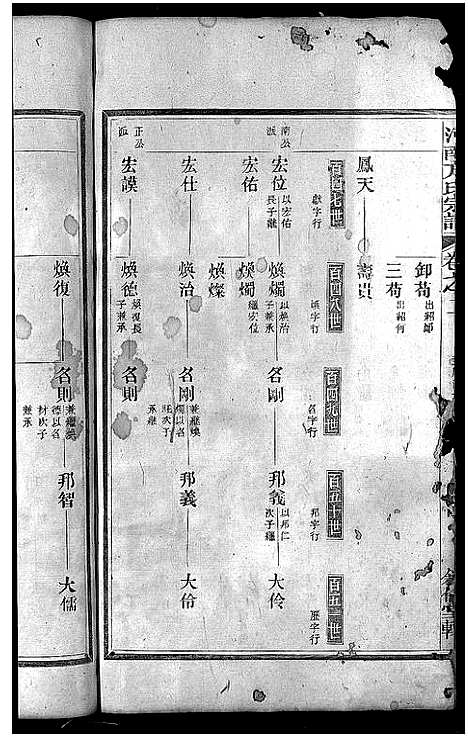 卸荀 出紹郎
三荀 出紹何
鳳天 壽貴
百四七世 獻字行
百四八世 煥字行
百四九世 名字行
百五十世 邦字行
百五一世 歷字行
南公派
宏位 以宏佑長子繼 煥燭 以煥治子兼承 名剛 邦義 以邦仁次子繼 大伶
宏佑 煥燭 繼宏位
煥燦
宏仕 煥治 名剛 兼繼煥燭以名 邦義 大伶
正公派
宏謨 煥德 煥復長子兼承 名則
煥復 名則 兼繼煥德以名材次子兼承 邦智 大儒